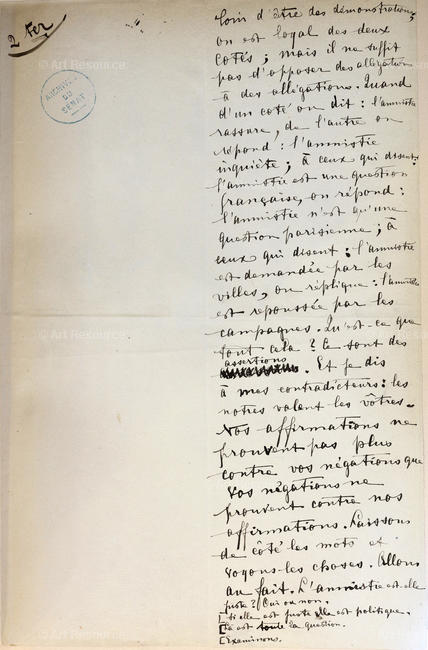 2 ter
ARCHIVES
DU
SÉNAT
loin d'être des démonstrations;
on est loyal des deux
côtés; mais il ne suffit
pas d'opposer des allégations
à des allégations. Quand
d'un coté on dit : l'amnistie
rassure, de l'autre on
répond : l'amnistie
inquiète; à ceux qui disent :
l'amnistie est une question
française, on répond :
l'amnistie n'est qu'une
question parisienne; à
ceux qui disent : l'amnistie
est demandée par les
villes, on réplique : l'amnistie
est repoussée par les
campagnes. Qu'est-ce que
tout cela ? Ce sont des
assertions
. Et je dis
à mes contradicteurs : les
notres valent les vôtres.
Nos affirmations ne
prouvent pas plus
contre vos négations que
vos négations ne
prouvent contre nos
affirmations. Laissons
de côté les mots et
voyons les choses. Allons
au fait. L'amnistie est-elle
juste ? Oui ou non.
Si elle est juste elle est politique.
Là est toute la question.
Examinons.
© Art Resource
© Art Resource
© Art Resource
© Art Resource
© Art Resource
© Art Resource